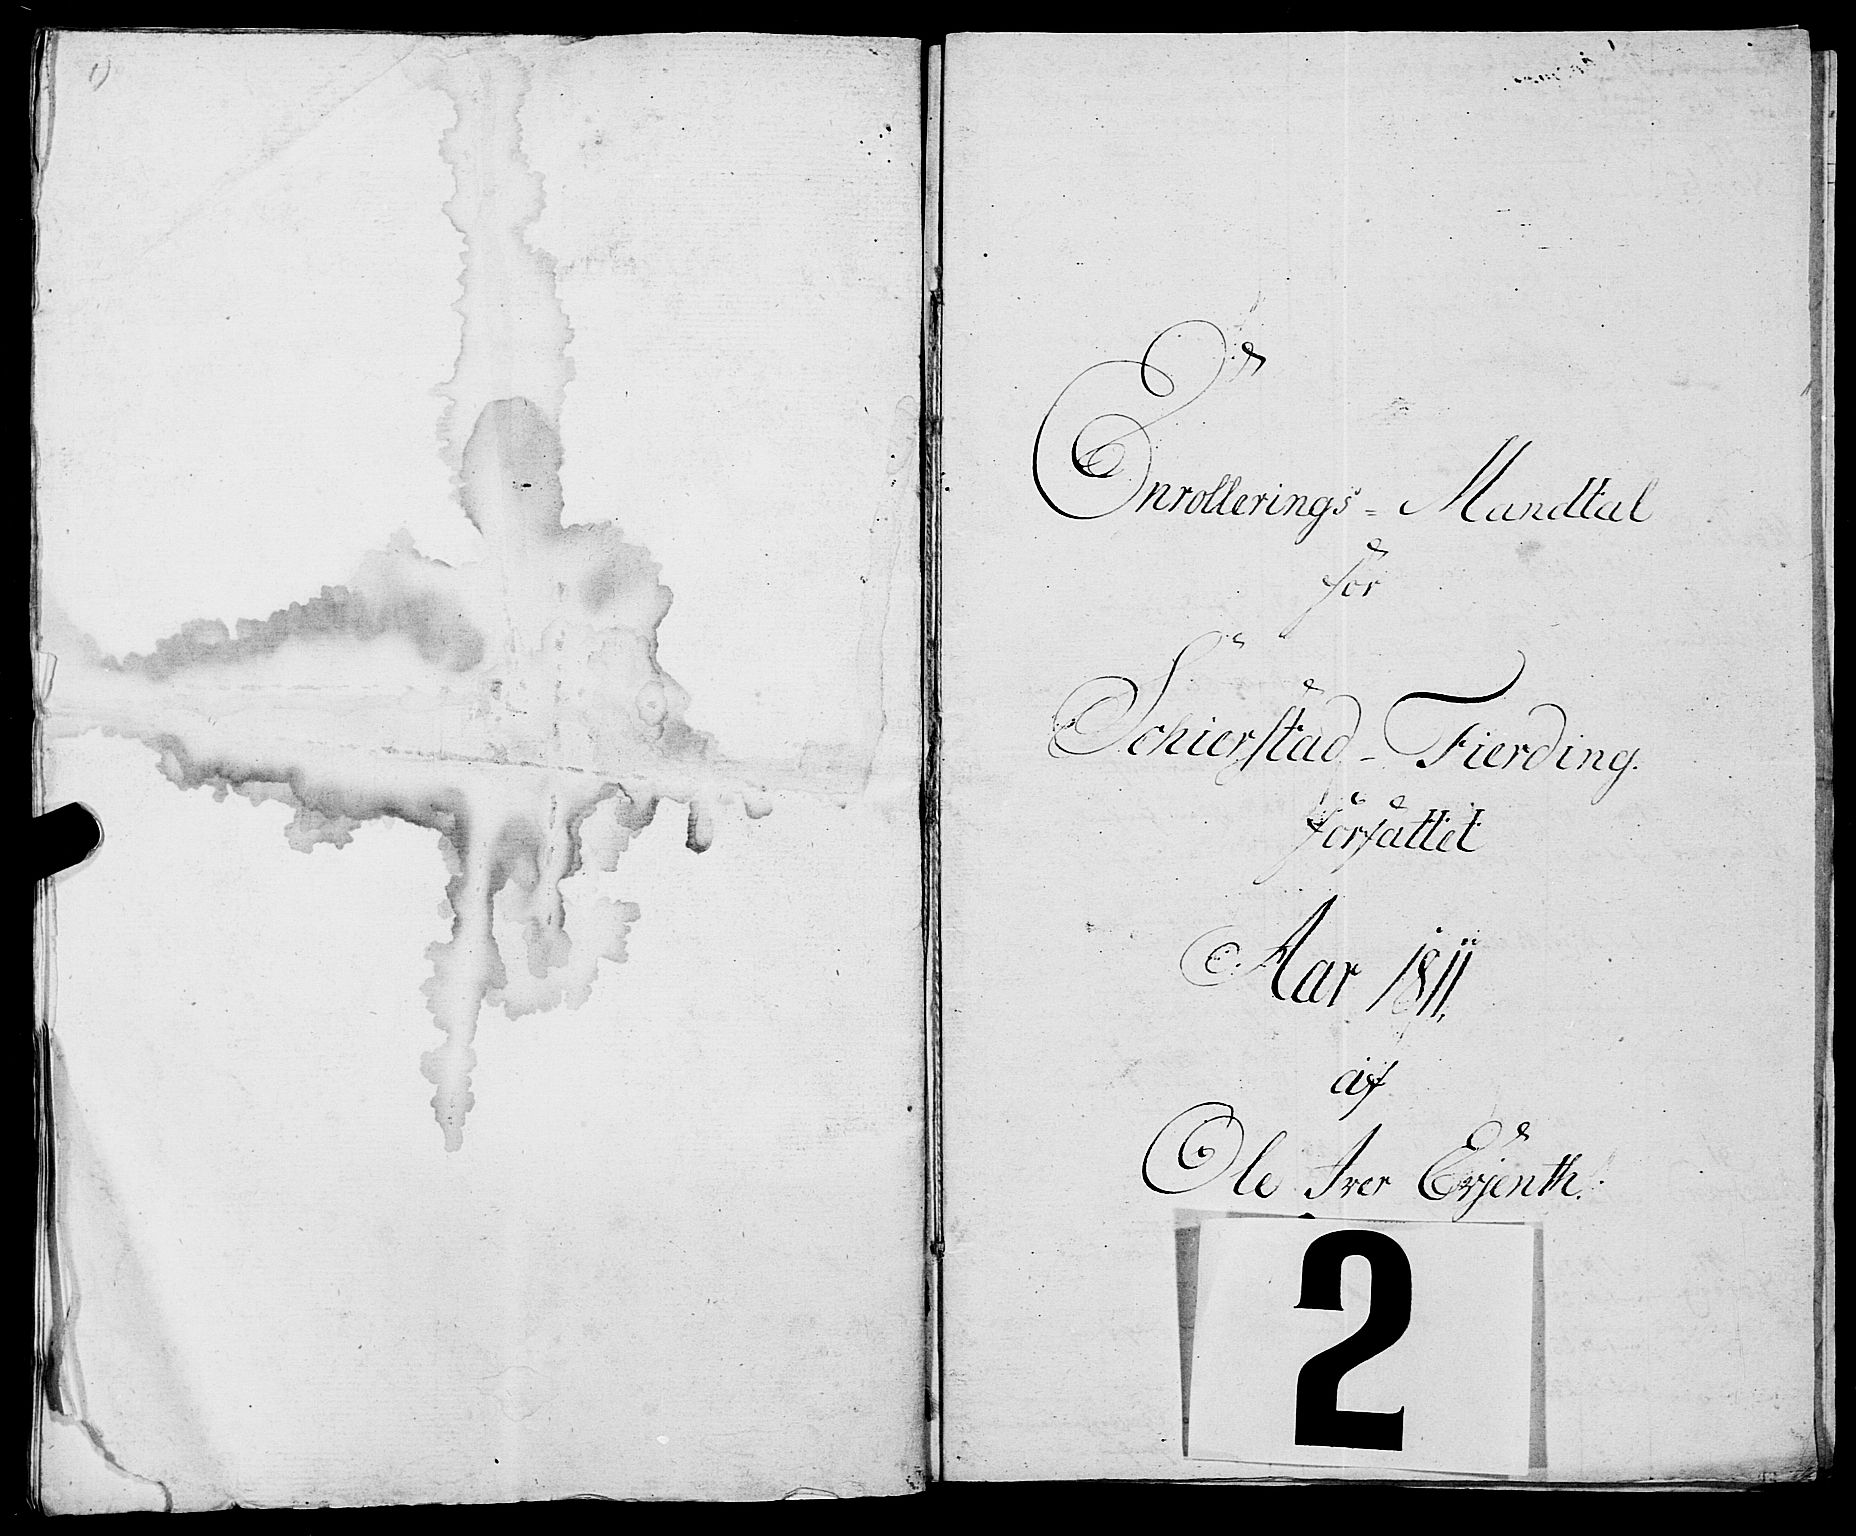 1)
Enrollerings = Mandtal
for
Schierstad - Fierding.
forfattet
Aar 1811.
af
Ole Iver Erjenth.
2